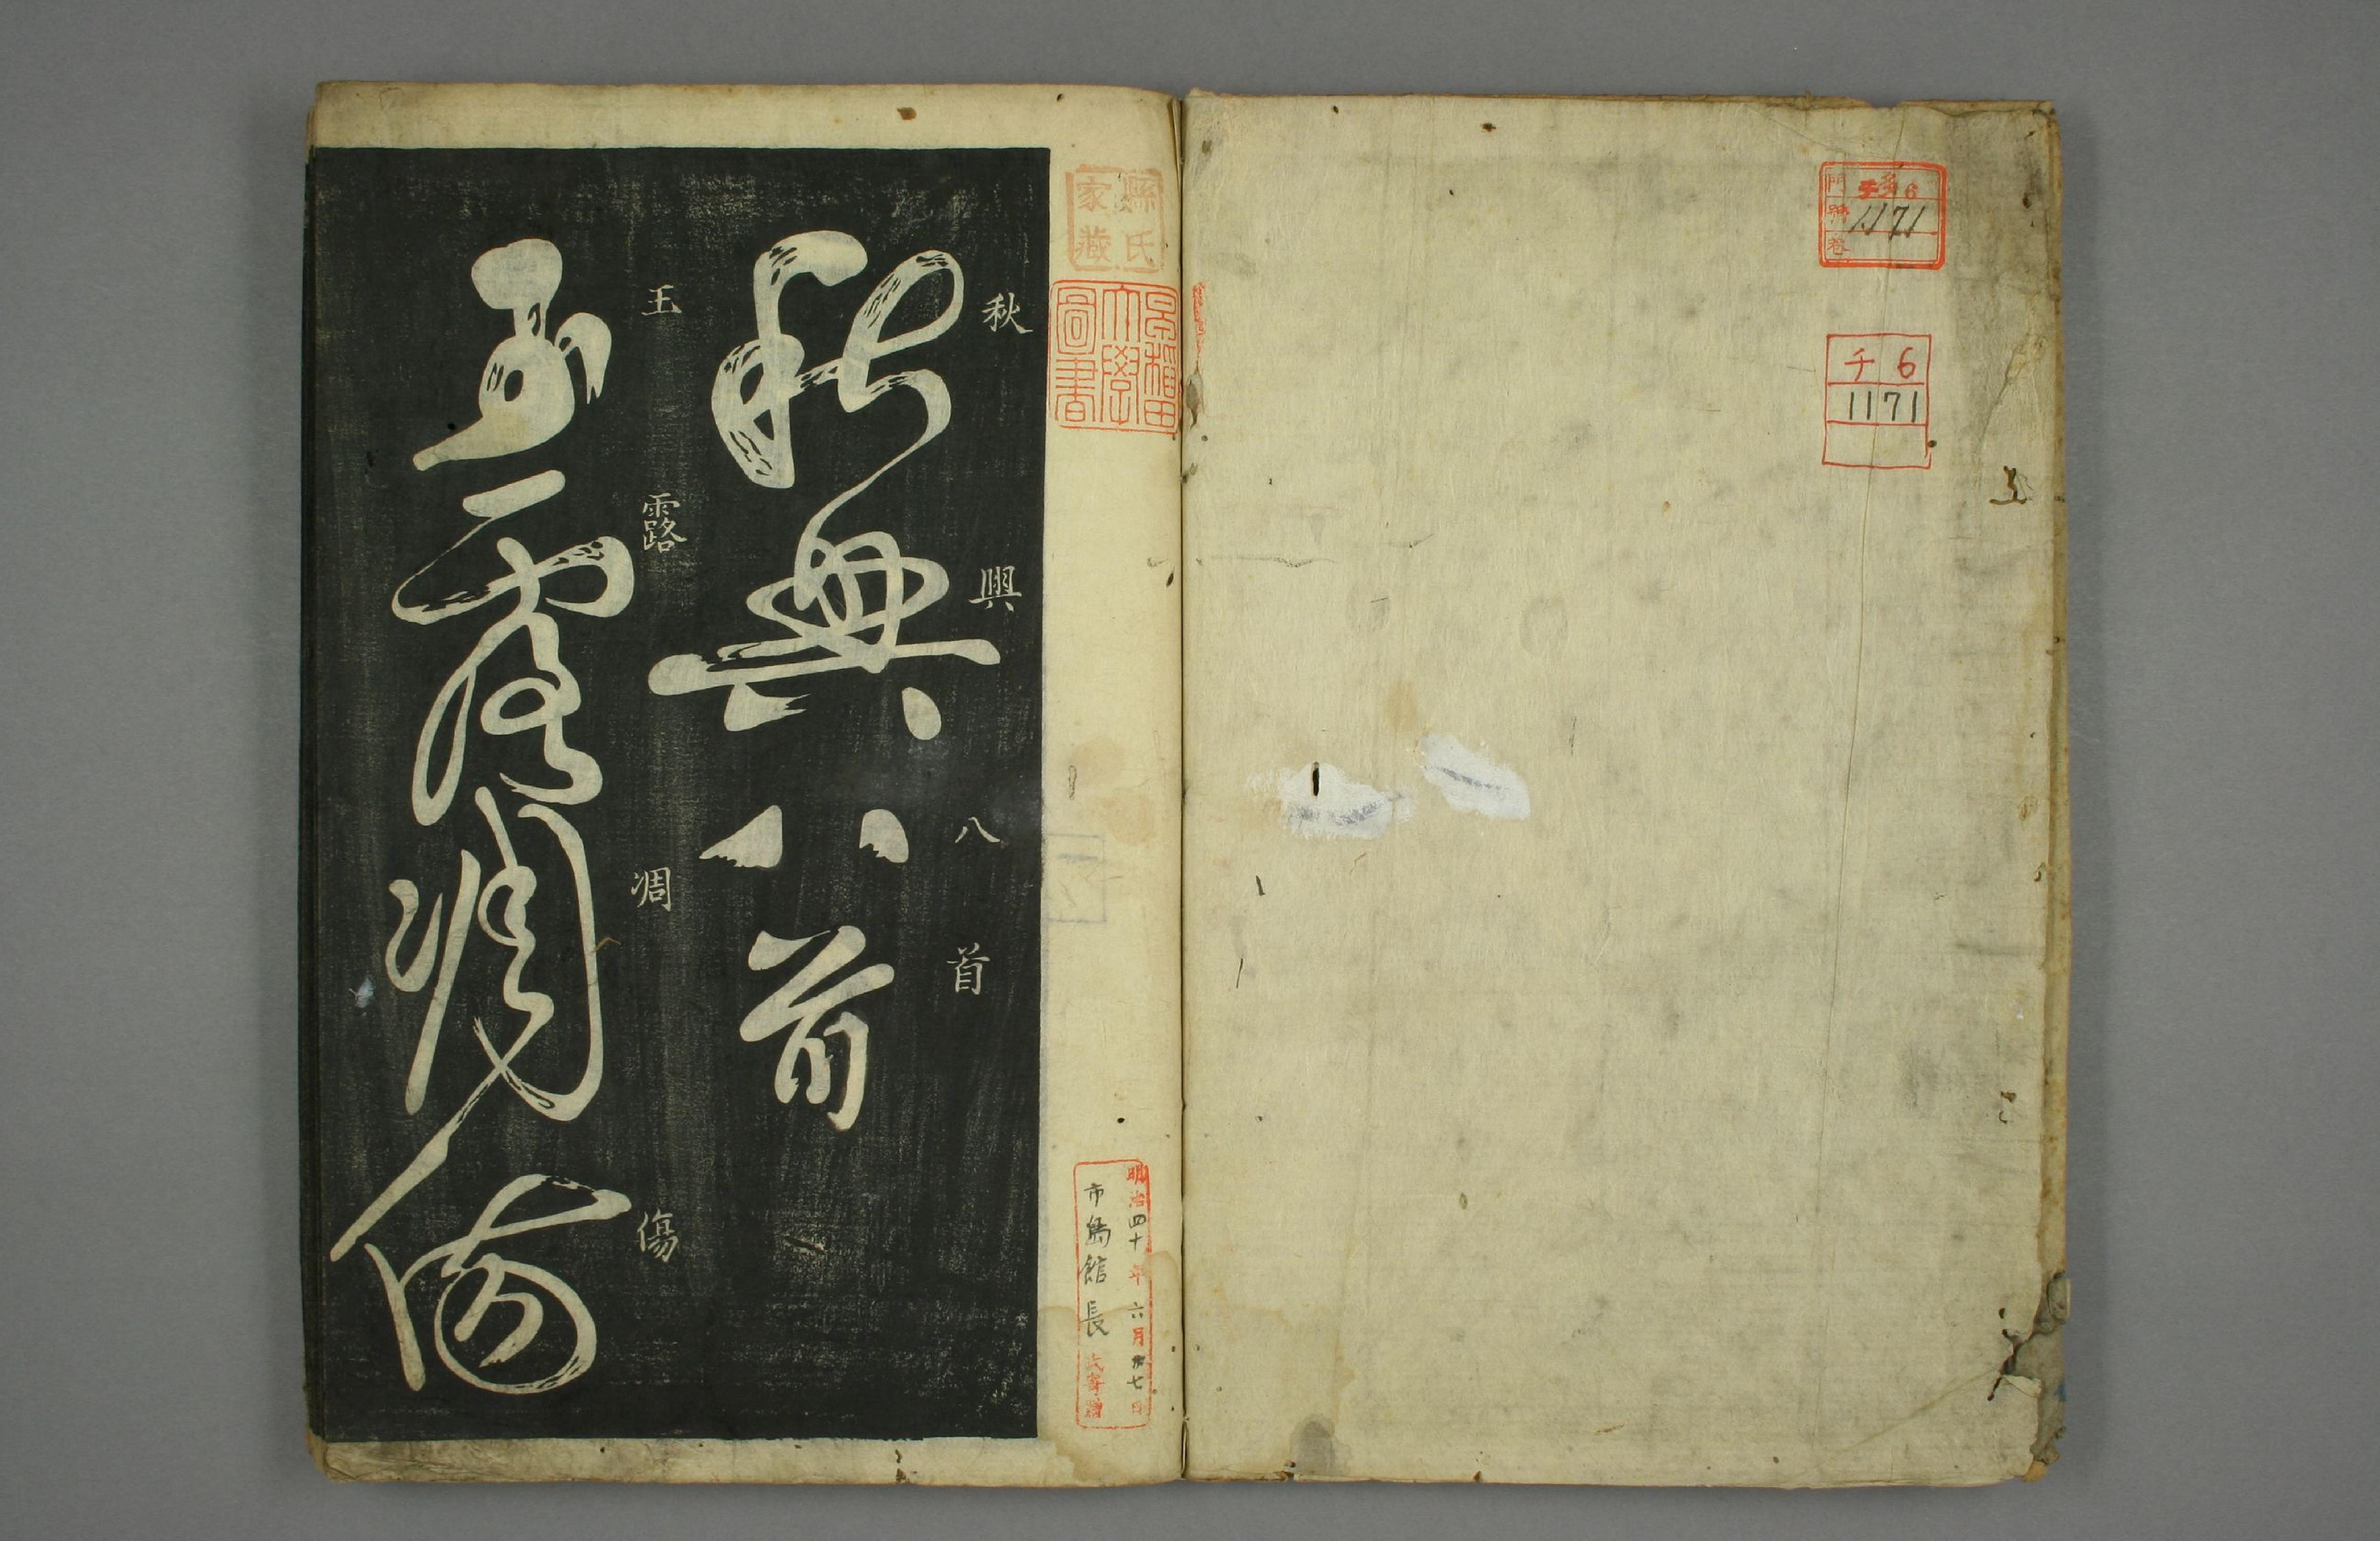 門 チ 6
號 1171
卷
チ 6
1171
縣氏
家藏
早稲田
大學
圖書
明治四十年六月廿七日
市島館長氏寄贈
秋興八首
秋興八首
玉露凋傷
玉露凋傷